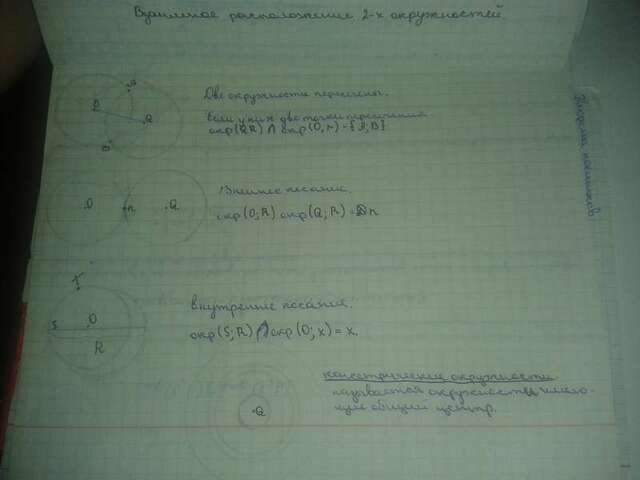 Взаимное расположение 2-х окружностей
Две окружности пересечены.
Если у них две точки пересечения.
окр(Q R) ∩ окр(O, r) = {A; B}
A
O
Q
B
Внешнее касание.
окр(O; R) окр(Q; R) = n
O
n
Q
внутренние касания:
окр(S; R) ∩ окр(O; x) = x.
S
O
R
концентрические окружности
называется окружности имею-
щие общий центр.
Q